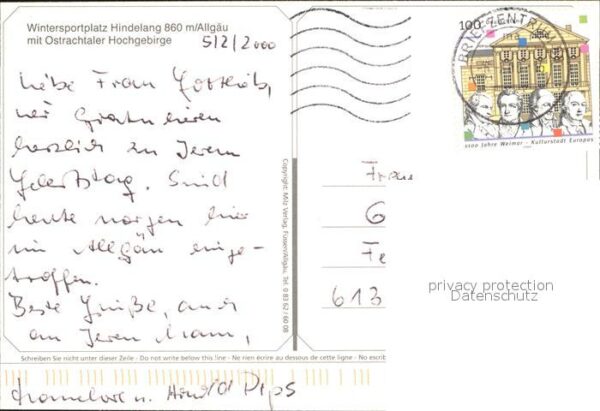 Wintersportplatz Hindelang 860 m/Allgäu
mit Ostrachtaler Hochgebirge
5/2/2000
Liebe Frau Gottlieb,
wir Gratulieren
herzlich zu Ihrem
Geburtstag. Sind
heute morgen hier
im Allgäu einge-
troffen.
Beste Grüße, auch
an Ihren Mann,
Hannelore u. Harald Pips
Copyright: Milz Verlag, Füssen/Allgäu, Tel. 0 83 62 / 60 08
100
BRIEFZENTRUM
1100 Jahre Weimar - Kulturstadt Europas
Frau
G
Fe
613
privacy protection
Datenschutz
Schreiben Sie nicht unter dieser Zeile - Do not write below this line - Ne rien écrire au dessous de cette ligne - No escrib